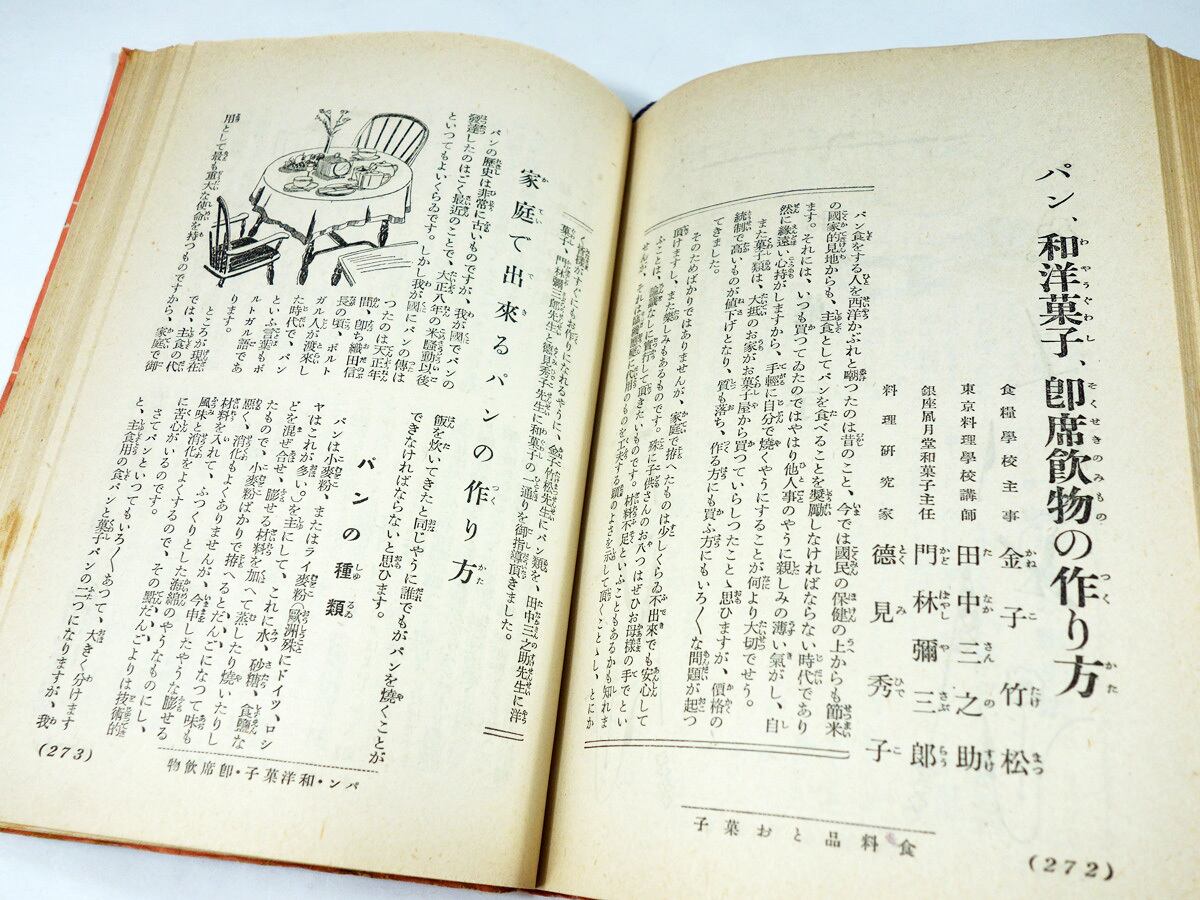 パン、和洋菓子、卽席飮物の作り方
食糧學校主事　金子竹松
東京料理學校講師　田中三之助
銀座凮月堂和菓子主任　門林彌三郎
料理硏究家　德見秀子
パン食をする人を西洋かぶれと嘲つたのは昔のこと、今では國民の保健の上からも節米
の國家的見地からも、主食としてパンを食べることを奬勵しなければならない時代であり
ます。それには、いつも買つてゐたのではやはり他人事のやうに親しみの薄い氣がし、自
然に緣遠い心持がしますから、手輕に自分で燒くやうにすることが何より大切でせう。
また菓子類は、大抵のお家がお菓子屋から買つていらしつたことゝ思ひますが、價格の
統制で高いものが値下となり、質も落ち、作る方にも買ふ方にもいろ〱な問題が起つ
てきました。
そのためばかりではありませんが、家庭で拵へたものは少しくらゐ不出來でも安心して
頂けますし、また樂しみもあるものです。殊に子供さんのお八つはぜひお母樣の手でとい
ふことは、議論なしに實行して頂きたいものです。材料不足といふこともあるかも知れま
せんが、それは
代用のものを工夫する
のよさを示して頂くことゝし、とにか
食料品とお菓子
(272)
皆樣がすぐにもお作りになれるやうに、金子竹松先生にパン類を、田中三之助先生に洋
菓子、門林彌三郎先生と德見秀子先生に和菓子の一通りを御指導頂きました。
家庭で出來るパンの作り方
パンの歷史は非常に古いものですが、我が國でパンの
發達したのはごく最近のことで、大正八年の米騷動以後
といつてもよいくらゐです。しかし我が國にパンの傳は
つたのは天正年
間、卽ち織田信
長の頃、ポルト
ガル人が渡來し
た時代で、パン
といふ言葉もポ
ルトガル語であ
ります。
ところが現在
では、主食の代
用として最も重大な使命を持つものですから、家庭で御
飯を炊いてきたと同じやうに誰でもがパンを燒くことが
できなければならないと思ひます。
パンの種類
パンは小麥粉、またはライ麥粉(歐洲殊にドイツ、ロシ
ヤはこれが多い。)を主にして、これに水、砂糖、食鹽な
どを混ぜ合せ、膨ませる材料を加へて蒸したり燒いたりし
たもので、小麥粉ばかりで拵へるとだんごになつて味も
惡く、消化もよくありませんが、今申したやうな膨せる
材料を入れて、ふつくりとした海綿のやうなものにし、
風味と消化をよくするので、その點だんごよりは技術的
に苦心がいるのです。
さてパンといつてもいろ〱あつて、大きく分けます
と、主食用の食パンと菓子パンの二つになりますが、我
パン・和洋菓子・卽席飮物
(273)